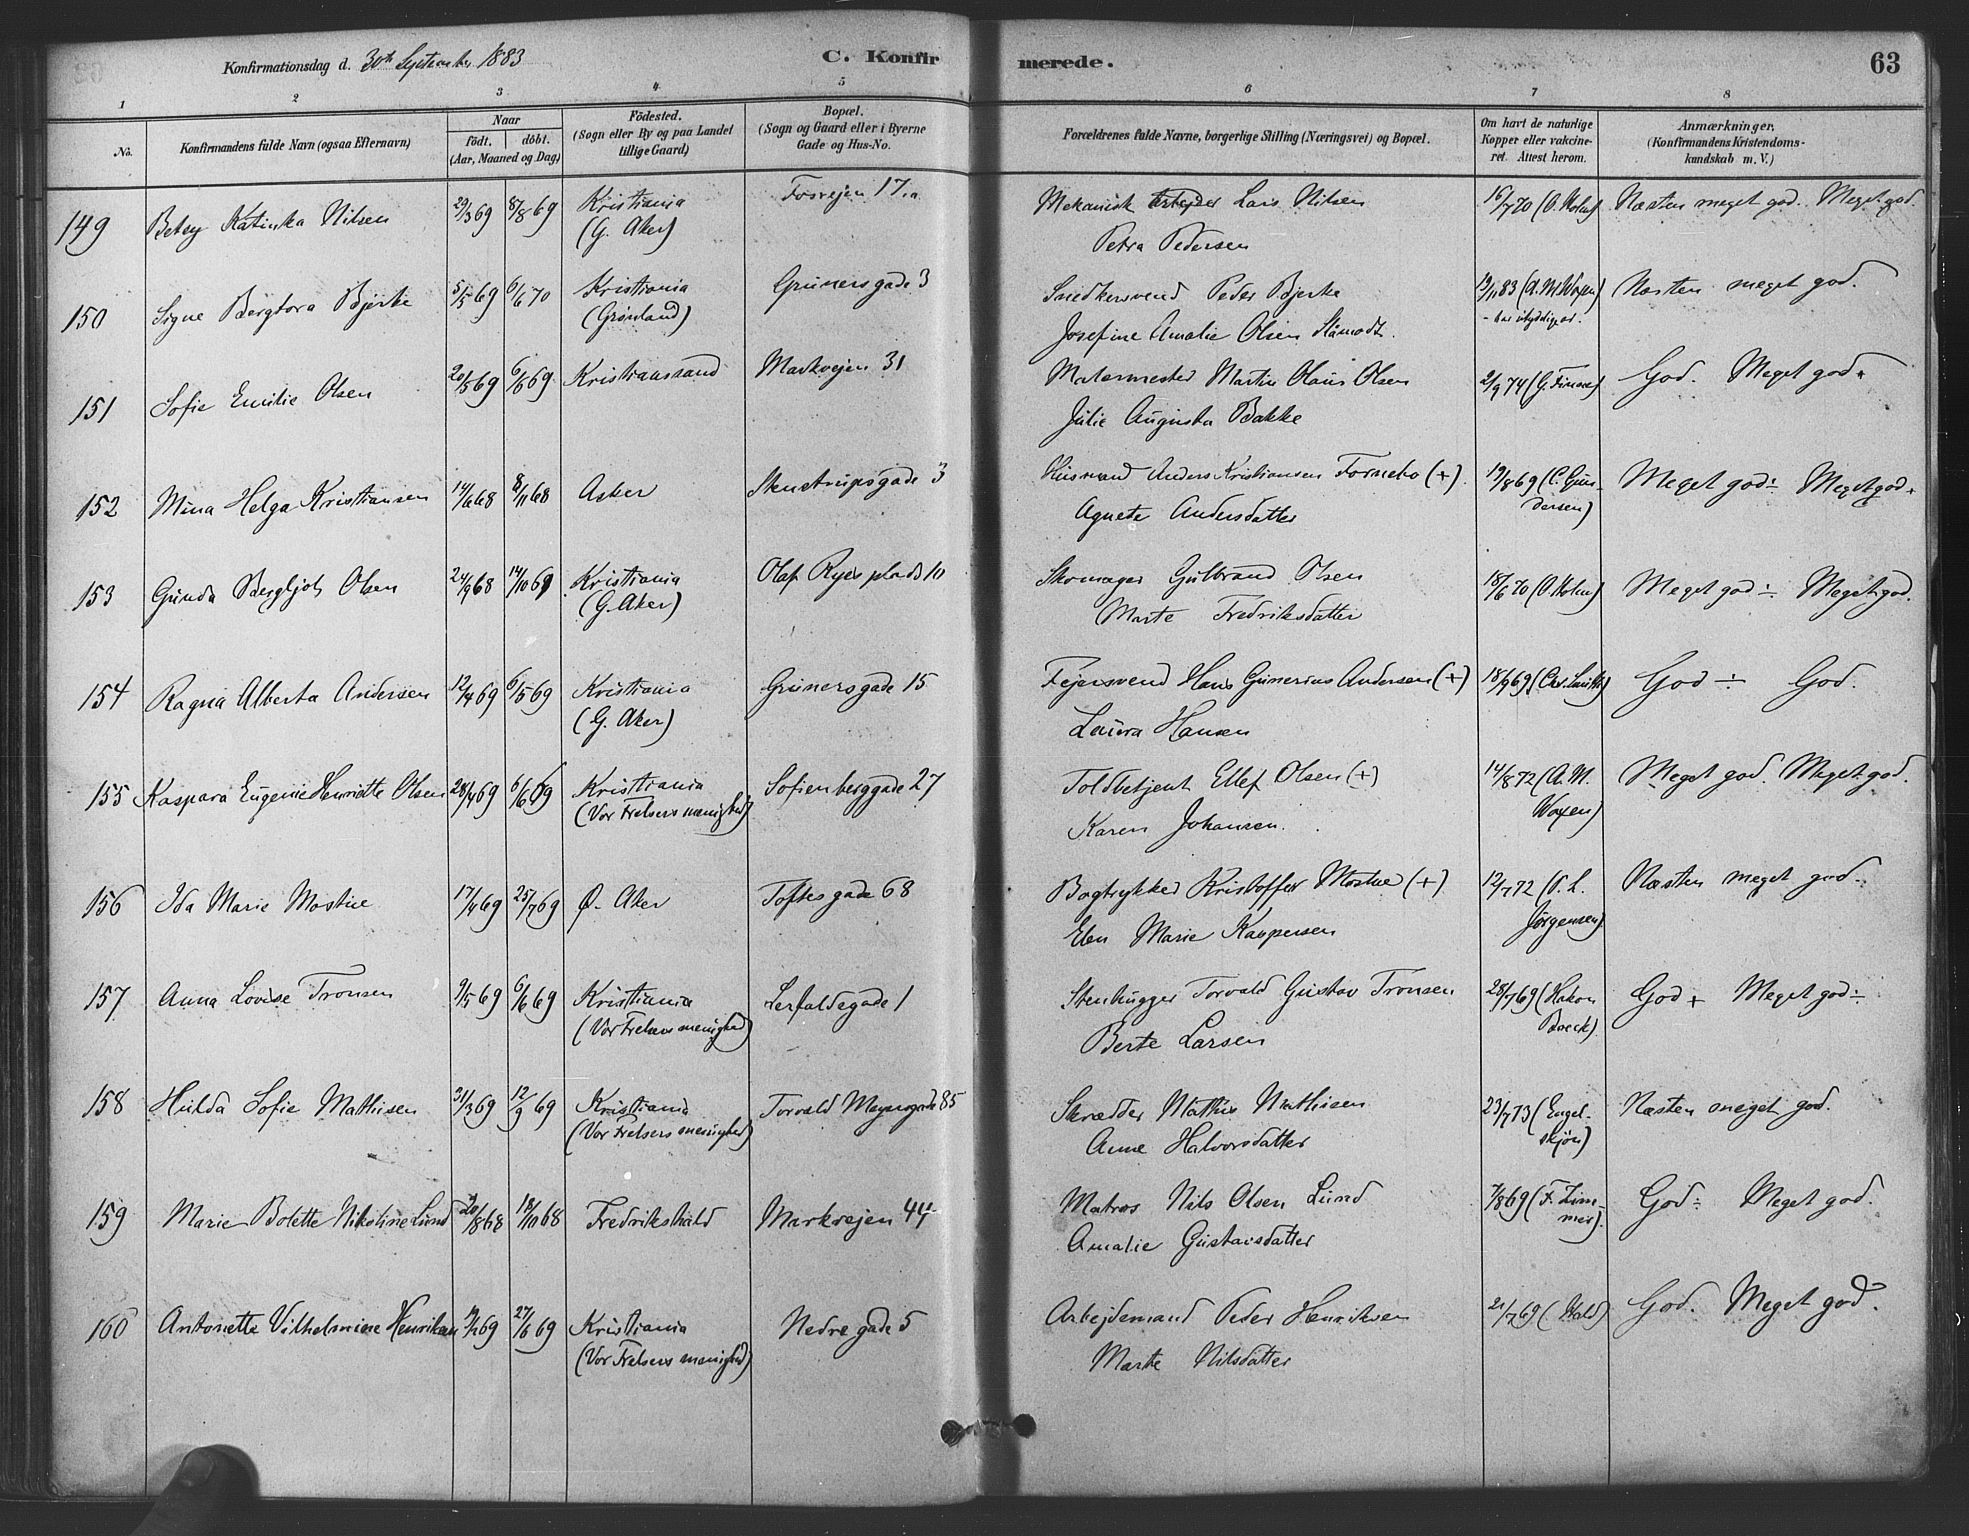 Konfirmationsdag d. 30th September 1883 C. Konfirmerede. 63
1 2 3 4 5 6 7 8
No. Konfirmandens fulde Navn (ogsaa Efternavn) Naar födt. döbt. (Aar, Maaned og Dag) Födested. (Sogn eller By og paa Landet tillige Gaard) Bopæl. (Sogn og Gaard eller i Byerne Gade og Hus-No. Forældrenes fulde Navne, borgerlige Stilling (Næringsvei) og Bopæl. Om havt de naturlige Kopper eller vakcineret. Attest herom. Anmærkninger. (Konfirmandens Kristendomskundskab m. V.)
149 Betsy Katinka Nilsen 29/3 69 8/8 69 Kristiania Fosvejen 17a Mekanisk arbejder Lars Nilsen 16/7 70 (O. Holm) Næsten meget god. Meget god.
(G. Aker) Petra Pedersen
150 Signe Bergtora Bjerke 5/5 69 6/6 70 Kristiania Grünersgade 3 Snedkersvend Peder Bjerke 19/11 83 (A. M. Woxen) Næsten meget god.
(Grønland) Josefine Amalie Olsen
151 Sofie Emilie Olsen 20/5 69 6/6 69 Kristianssand Markvejen 31 Malermester Martin Olaus Olsen 2/9 74 God. Meget god.
Julie Augusta Bakke
152 Mina Helga Kristiansen 14/6 68 8/11 68 Asker Stenstrupsgade 3 Husmand Anders Kristiansen Fornebo (+) 19/8 69 (C. Gun- Meget god ÷ Meget god +
Agnete Andersdatter dersen)
153 Gunda Bergljot Olsen 24/9 68 14/10 69 Kristiania Olaf Ryes plads 10 Skomager Gulbrand Olsen 18/6 70 (O. Holm) Meget god ÷ Meget god.
(G. Aker) Marte Fredriksdatter
154 Ragna Alberta Andersen 12/4 69 6/5 69 Kristiania Grünersgade 15 Fejersvend Hans Gunerius Andersen (+) 18/9 69 God ÷ God.
(G. Aker) Laura Hansen
155 Kaspara Eugenie Henriette Olsen 28/4 69 6/6 69 Kristiania Sofienberggade 27 Toldbetjent Ellef Olsen (+) 14/8 72 (A. M. Meget god. Meget god.
(Vor Frelsers menighed) Karen Johansen. Woxen)
156 Ida Marie Mostue 17/4 69 25/7 69 Ø. Aker Toftesgade 68 Bogtrykker Kristoffer Mostue (+) 12/7 72 (O. L. Næsten meget god.
Elen Marie Kaspersen Jørgensen)
157 Anna Lovise Tronsen 9/5 69 6/6 69 Kristiania Lerfaldsgade 1 Stenhugger Torvald Gustav Tronsen 28/7 69 (Hakon God + Meget god ÷
(Vor Frelsers menighed) Berte Larsen Boeck)
158 Hilda Sofie Mathisen 31/3 69 12/9 69 Kristiania Torvald Meyersgade 85 Skrædder Mathis Mathisen 23/7 73 (Engel- Næsten meget god.
(Vor Frelsers menighed) Anne Halvorsdatter skjön)
159 Marie Bolette Nikoline Lund 20/8 68 18/10 68 Fredrikshald Markvejen 44 Matros Nils Olsen Lund 7/8 69 (F. Zim- God ÷ Meget god.
Amalie Gustavsdatter mer)
160 Antonette Vilhelmine Henriksen 27/6 69 Kristiania Nedregade 5 Arbejdsmand Peder Henriksen 21/7 69 God. Meget god.
(Vor Frelsers menighed) Marte Nilsdatter